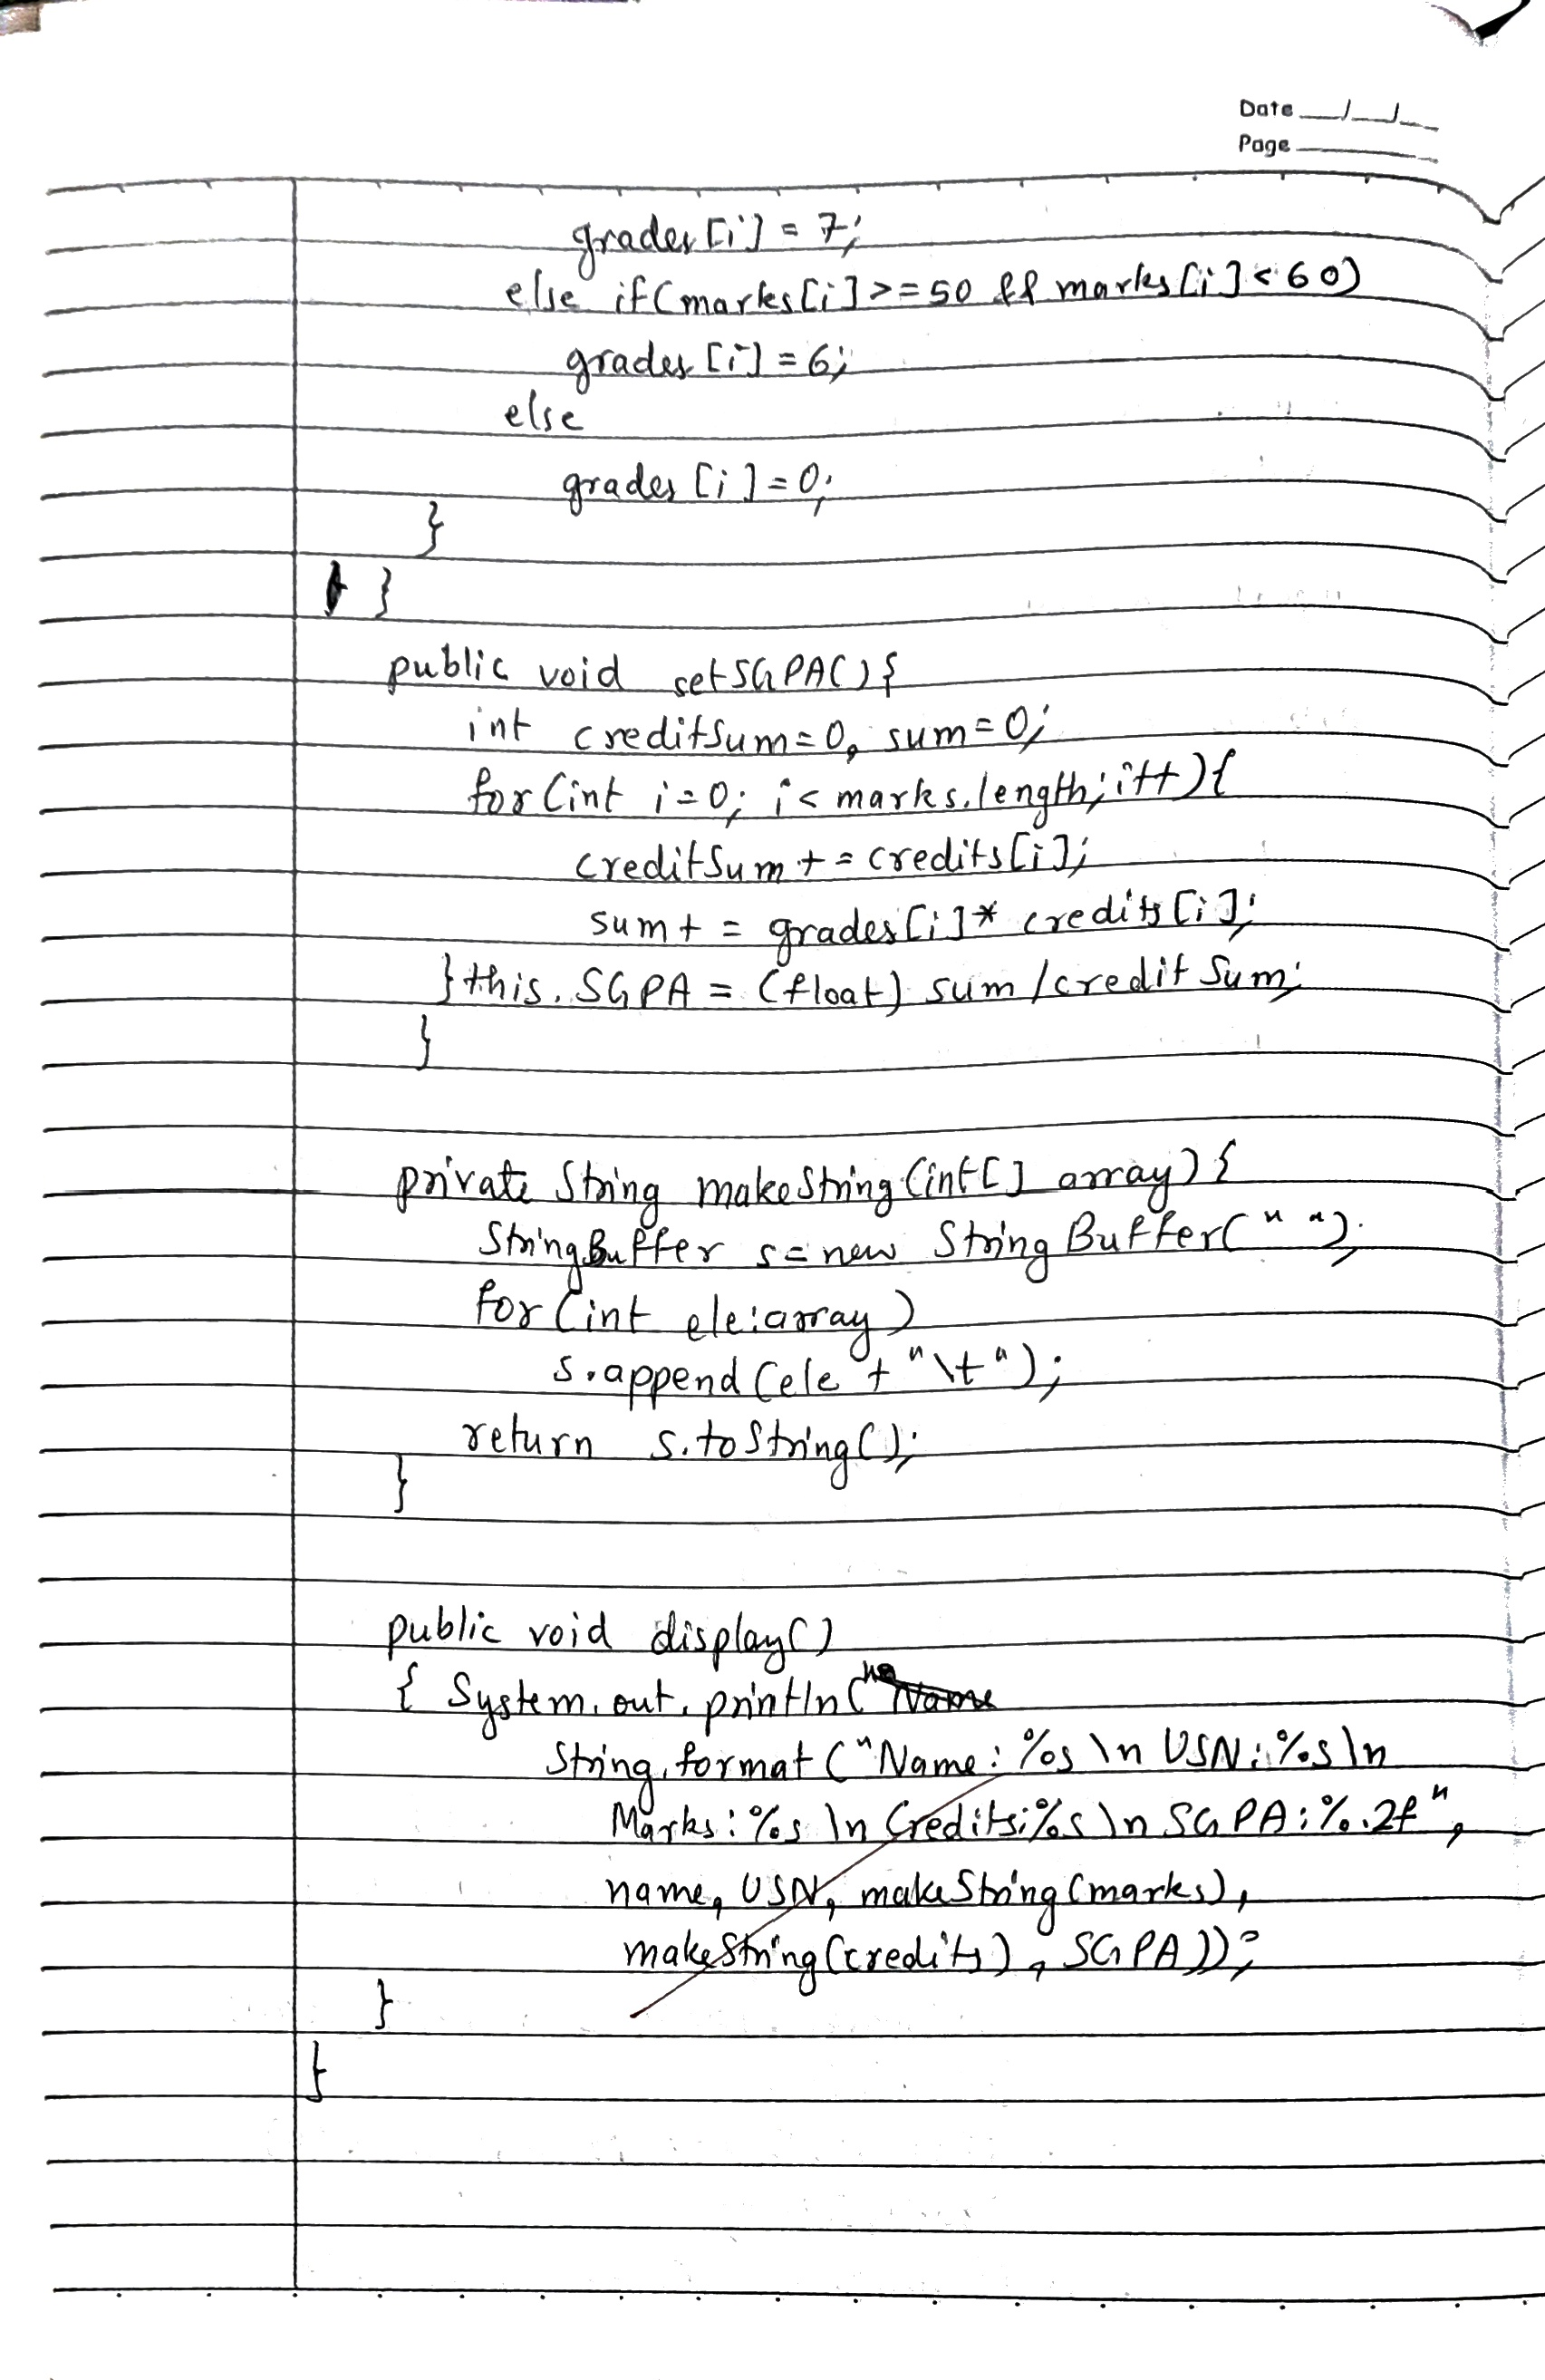 Date __/__/__
Page
grades[i] = 7;
else if(marks[i]>=50 && marks[i]<60)
grades[i]=6;
else
grades[i]=0;
}
}
public void setSGPA(){
int creditSum=0, sum=0;
for(int i=0; i< marks.length; i++){
creditSum += credits[i];
sum += grades[i]* credits[i];
}this.SGPA = (float) sum/creditSum;
}
private String makeString(int[] array){
StringBuffer s=new StringBuffer(" ");
for(int ele:array)
s.append(ele + "\t");
return s.toString();
}
public void display()
{ System.out.println(
String.format("Name: %s \n USN: %s \n
Marks: %s \n Credits: %s \n SGPA: %.2f",
name, USN, makeString(marks),
makeString(credits), SGPA));
}
}